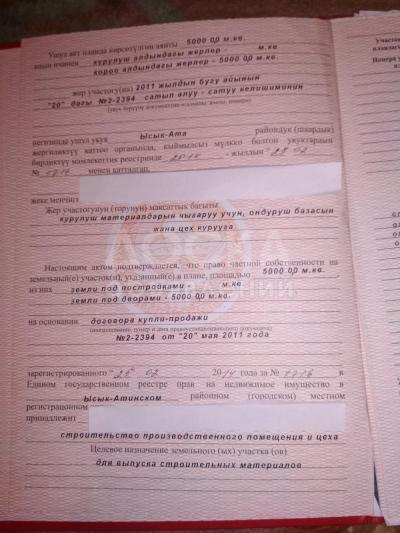 Ушул акт планда көрсөтүлгөн аянты 5000 00 м.кв.
анын ичинен курулуш алдындагы жерлер - м.кв
короо алдындагы жерлер - 5000 00 м.кв.
жер участогу(на) 2011 жылдын бугу айынын
"20" дагы №2-2394 сатып алуу - сатуу келишиминин
негизинде ушул укук Ысык-Ата райондук (шаардык)
жергиликтүү каттоо органында, кыймылсыз мүлккө болгон укуктардын
бирдиктүү мамлекеттик реестринде 2014 - жылдын
№ менен катталган,
жеке менчиги
Жер участогунун (торунун) максаттык багыты
курулуш материалдарын чыгаруу учун, ондуруш базасын
жана цех курууга
Настоящим актом подтверждается, что право частной собственности на
земельный(е) участок(и), указанный(е) в плане, площадью 5000 00 м.кв.
из них земли под постройками м.кв.
земли под дворами - 5000 00 м.кв.
на основании договора купли-продажи
(наименование, номер и дата правоустанавливающего документа)
№2-2394 от "20" мая 2011 года
зарегистрированного 02 2014 года за № в
Едином государственном реестре прав на недвижимое имущество в
Ысык-Атинском районном (городском) местном
регистрационном
принадлежит
строительство производственного помещения и цеха
Целевое назначение земельного (ых) участка (ов)
для выпуска строительных материалов